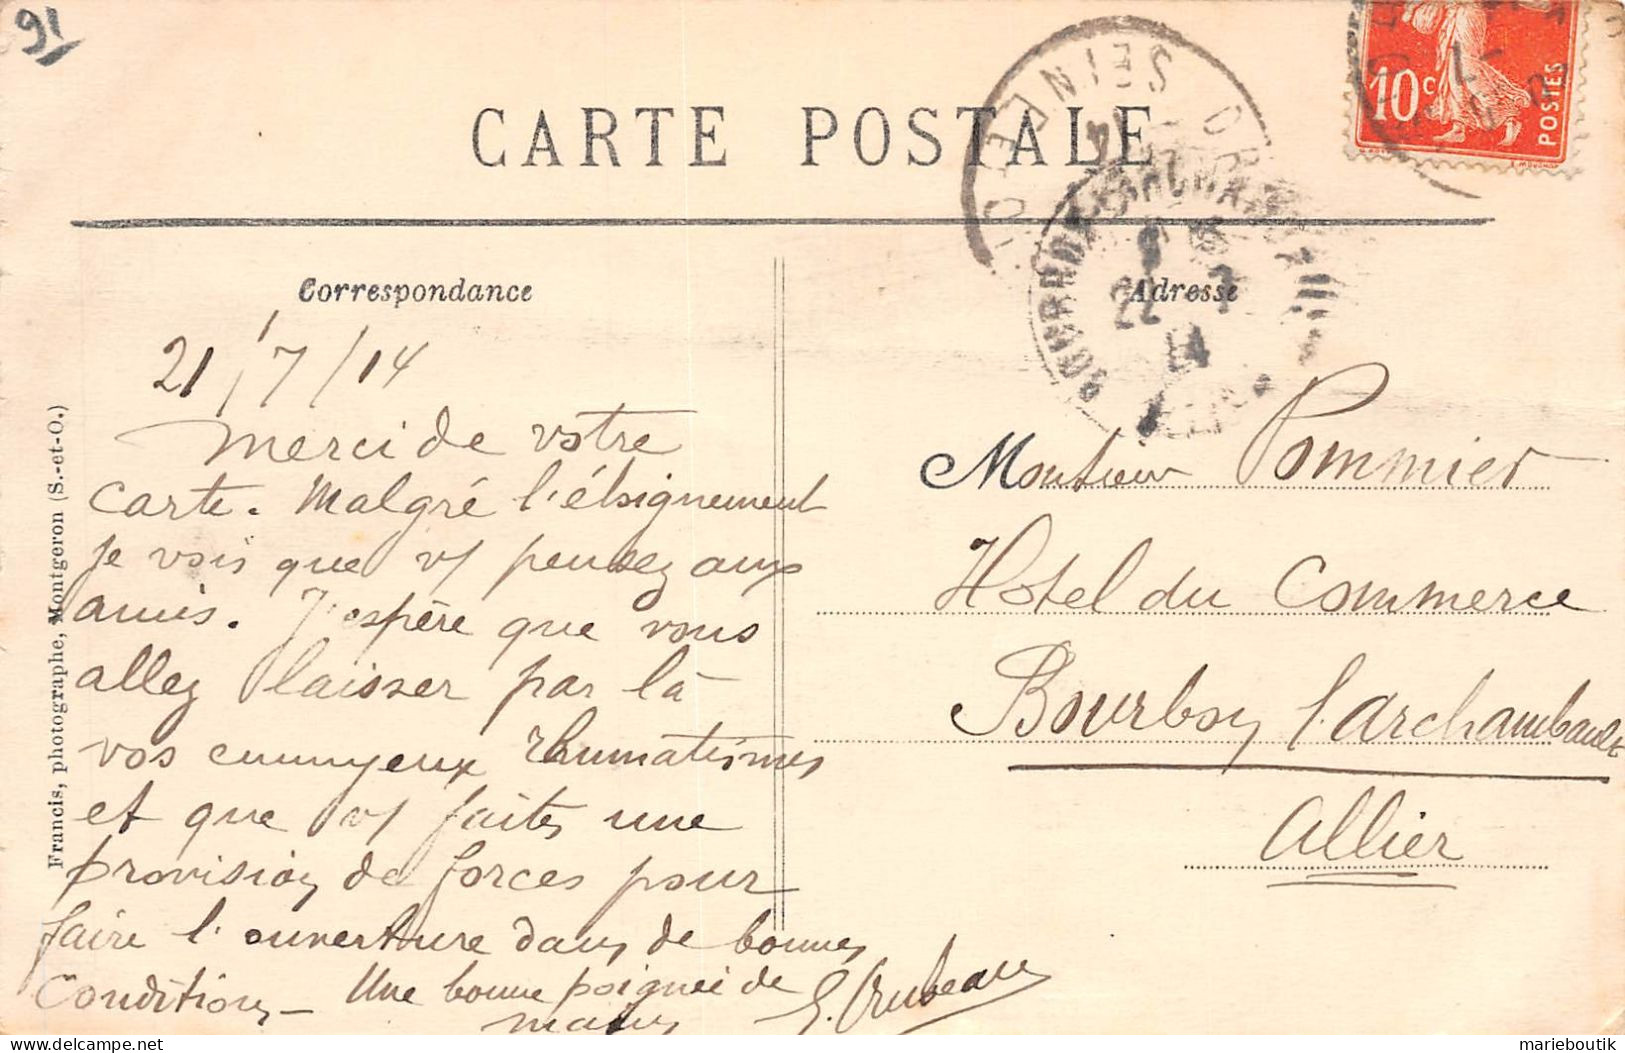 91
CARTE POSTALE
10c
POSTES
SEINE ET O
22 7 14
Correspondance
Adresse
21/7/14
Merci de votre
carte. Malgré l'éloignement
je vois que v/ pensez aux
amis. J'espère que vous
allez laisser par là
vos ennuyeux rhumatismes
et que v/ faites une
provision de forces pour
faire l'ouverture dans de bonnes
conditions – Une bonne poignée de
mains
Monsieur Pommier
Hotel du Commerce
Bourbon l'archambault
Allier
Francis, photographe, Montgeron (S.-et-O.)
marieboutik
delcampe.net